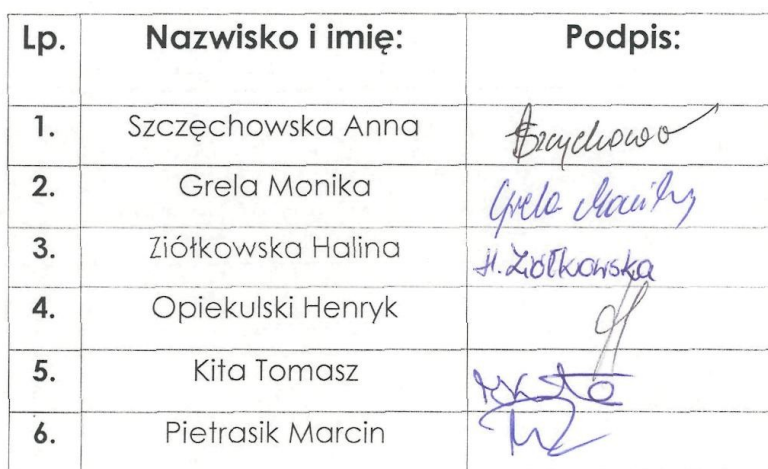 Lp. Nazwisko i imię: Podpis:
1. Szczęchowska Anna
2. Grela Monika Grela Monika
3. Ziółkowska Halina H. Ziółkowska
4. Opiekulski Henryk
5. Kita Tomasz
6. Pietrasik Marcin